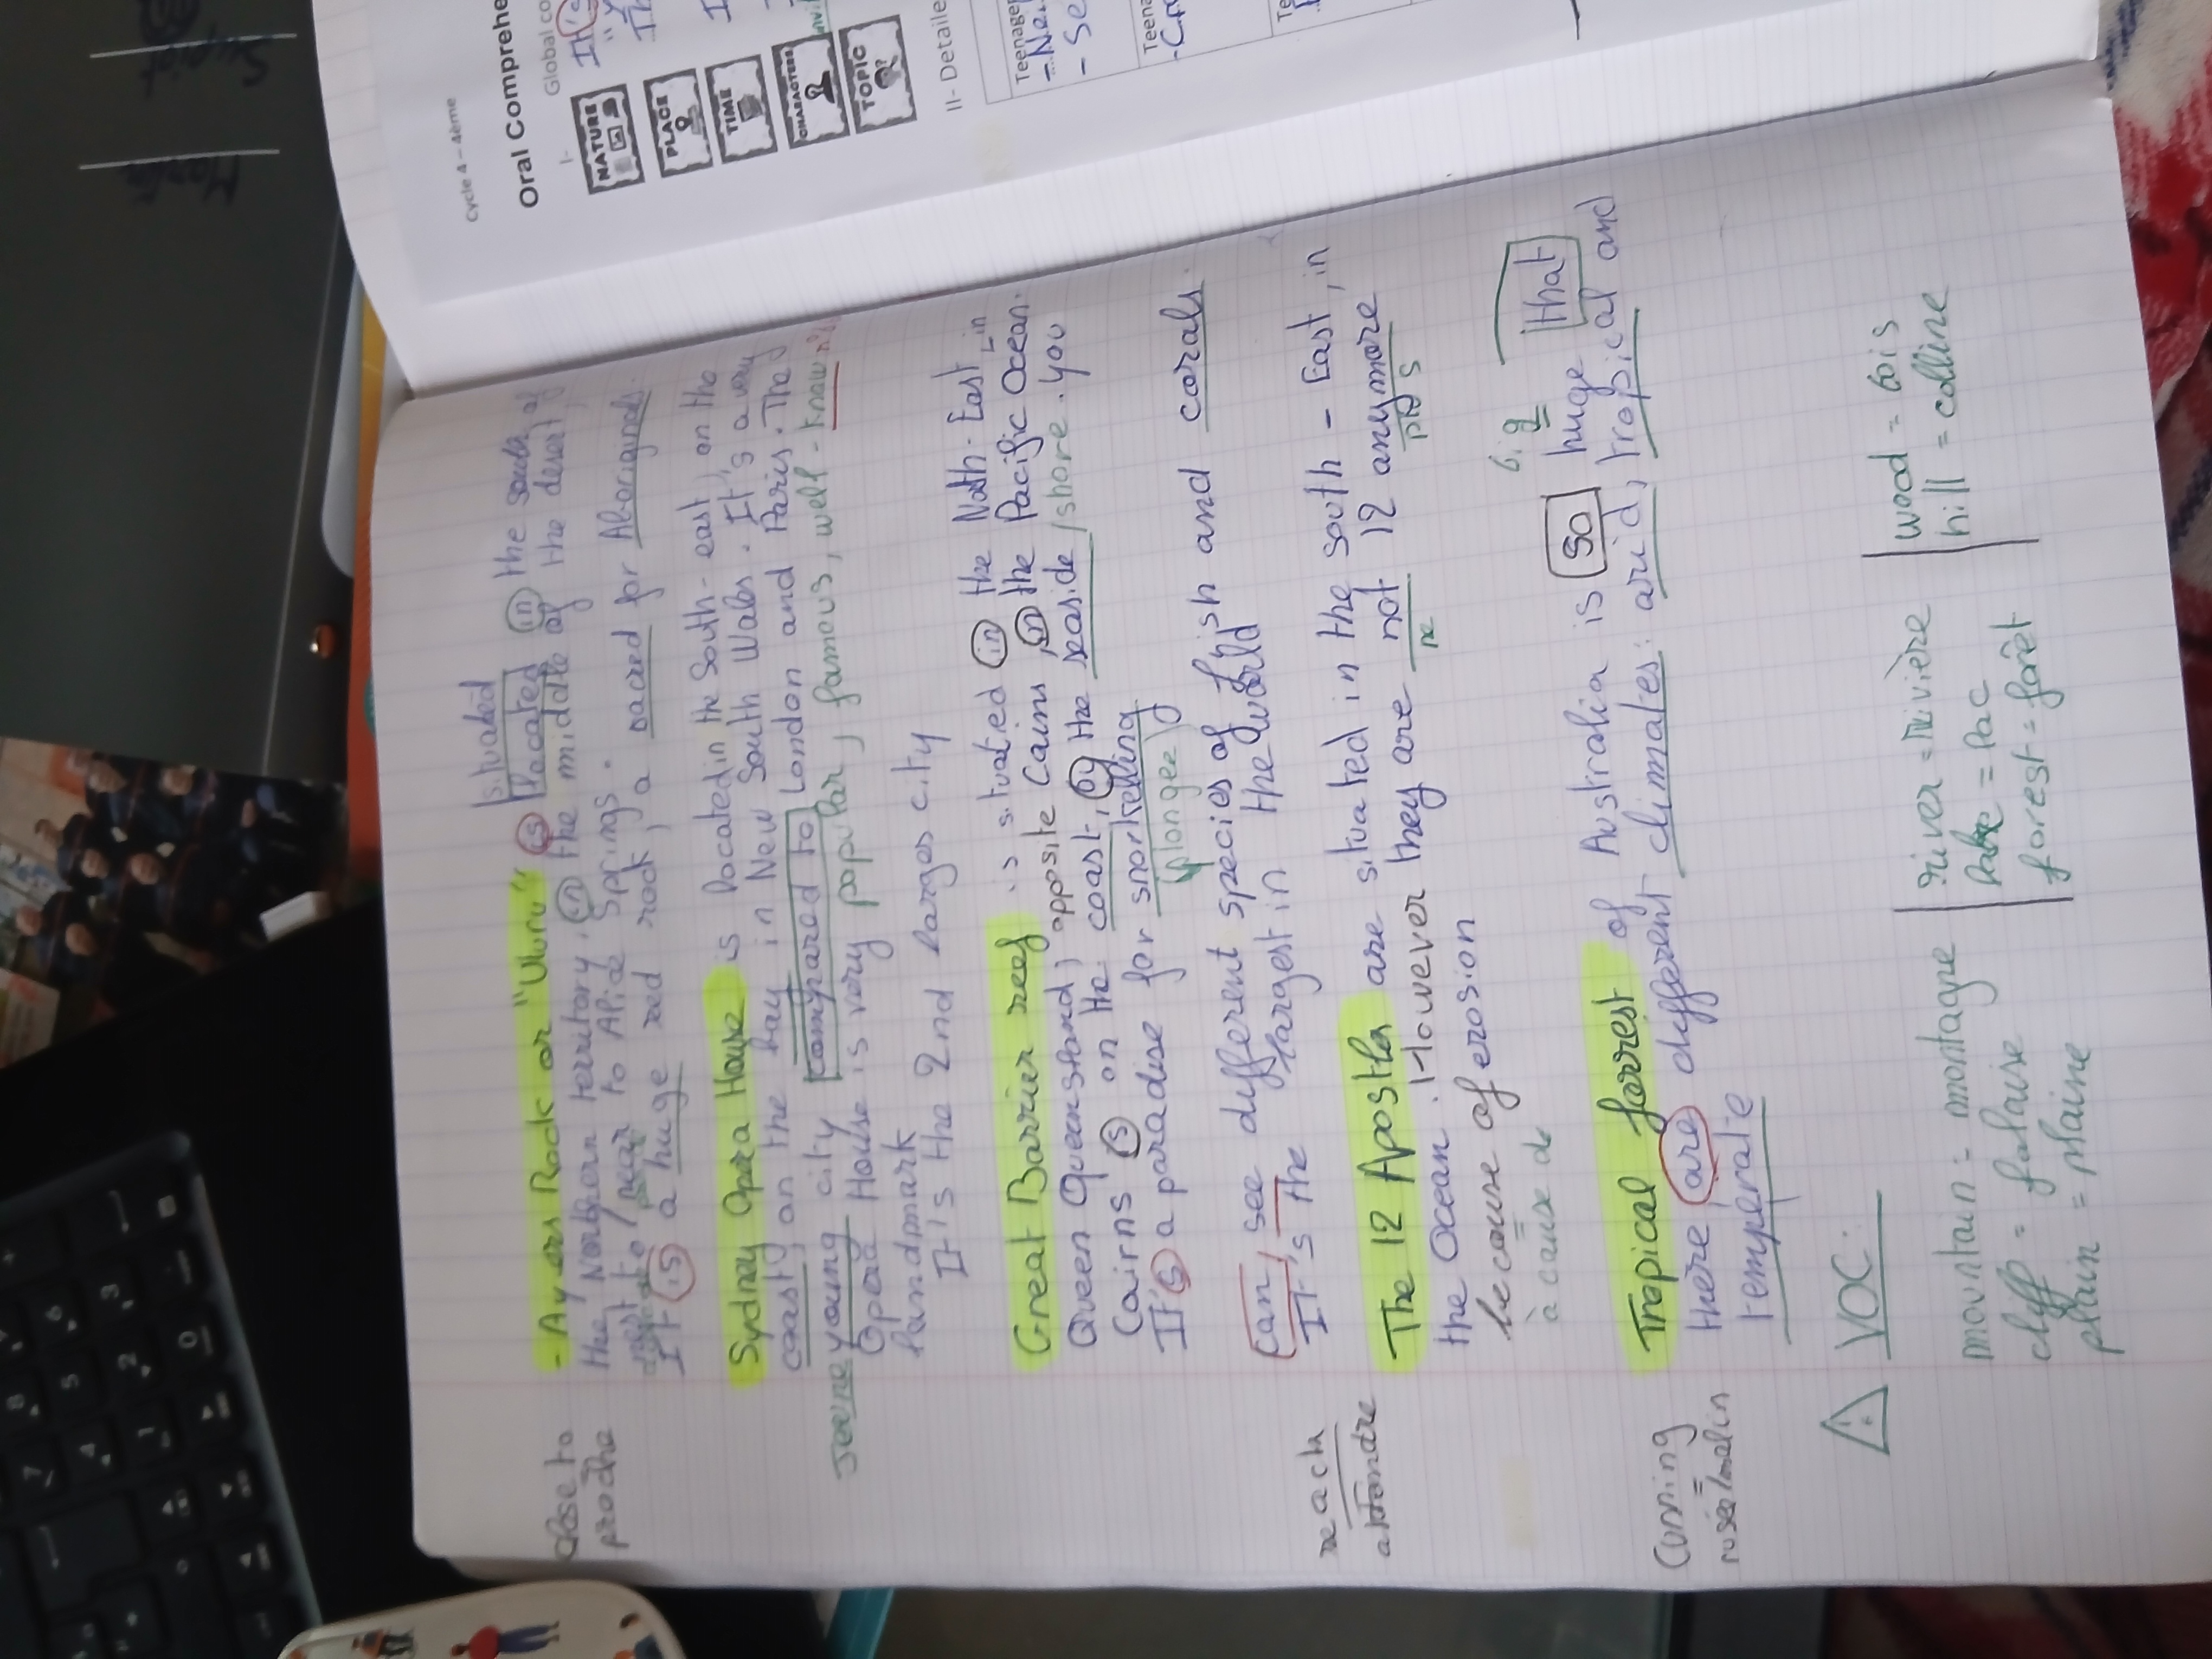 close to
proche
situated
- Ayers Rock or "Uluru" is located in the south of
the Northern territory, in the middle of the desert,
next to / near to Alice Springs.
It is a huge red rock, a sacred for Aboriginals.
Sydney Opera House is located in the South-east, on the
coast, on the bay in New South Wales. It's a very
jeune young city compared to London and Paris. The
Opera House is very popular, famous, well-known
landmark
It's the 2nd larges city
Great Barrier reef is situated in the North-East, in
Queen Queensland, opposite Cairns, in the Pacific Ocean.
Cairns is on the coast, by the seaside / shore. you
It's a paradise for snorkelling
plongée
can see different species of fish and corals.
It's the largest in the world
reach
attendre
The 12 Apostles are situated in the south-East, in
the Ocean. However they are not 12 anymore
ne
plus
because of erosion
à cause de
big
Tropical forrest of Australia is so huge that
there are different climates: arid, tropical and
temperate
Cunning
=
rusée/malin
VOC:
mountain = montagne
cliff = falaise
plain = plaine
river = rivière
lake = lac
forest = forêt
wood = bois
hill = colline
Cycle 4 – 4ème
Oral Comprehe
I- Global co
It's
NATURE
PLACE
TIME
CHARACTERS
TOPIC
II- Detaile
Teenage
- Se
Teena
Te